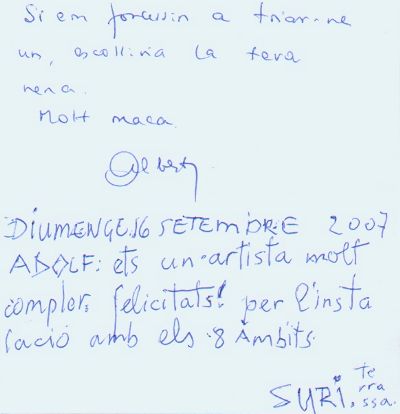 Si em forcessin a triar-ne
un, escolliria la teva
nena.
Molt maca.
Albert
DIUMENGE.16 SETEMBRE 2007
ADOLF: ets un artista molt
complert, felicitats! per l'insta
lació amb els 8 Àmbits.
SURI. te
rra
ssa.